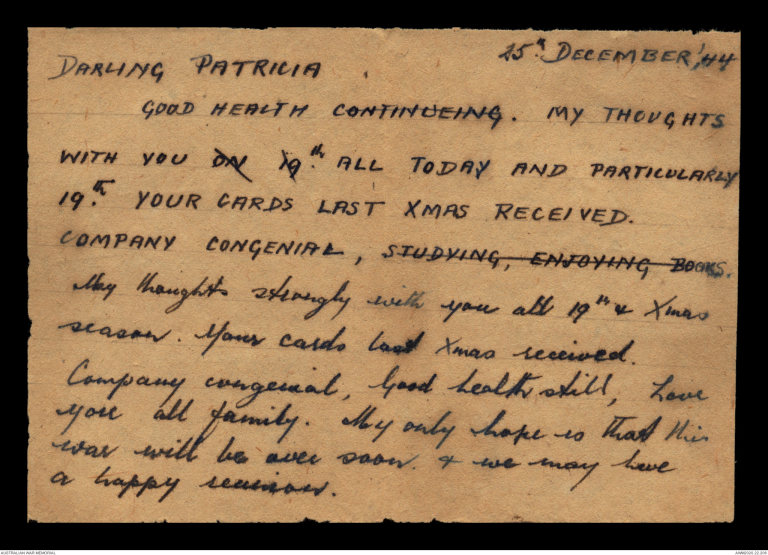 25th DECEMBER '44
DARLING PATRICIA
GOOD HEALTH CONTINUEING. MY THOUGHTS
WITH YOU ON 19th ALL TODAY AND PARTICULARLY
19th YOUR CARDS LAST XMAS RECEIVED.
COMPANY CONGENIAL, STUDYING, ENJOYING BOOKS.
My thoughts strongly with you all 19th & Xmas
season. Your cards last Xmas received.
Company congenial, Good health still, Love
you all family. My only hope is that this
war will be over soon. & we may have
a happy reunion.
AUSTRALIAN WAR MEMORIAL